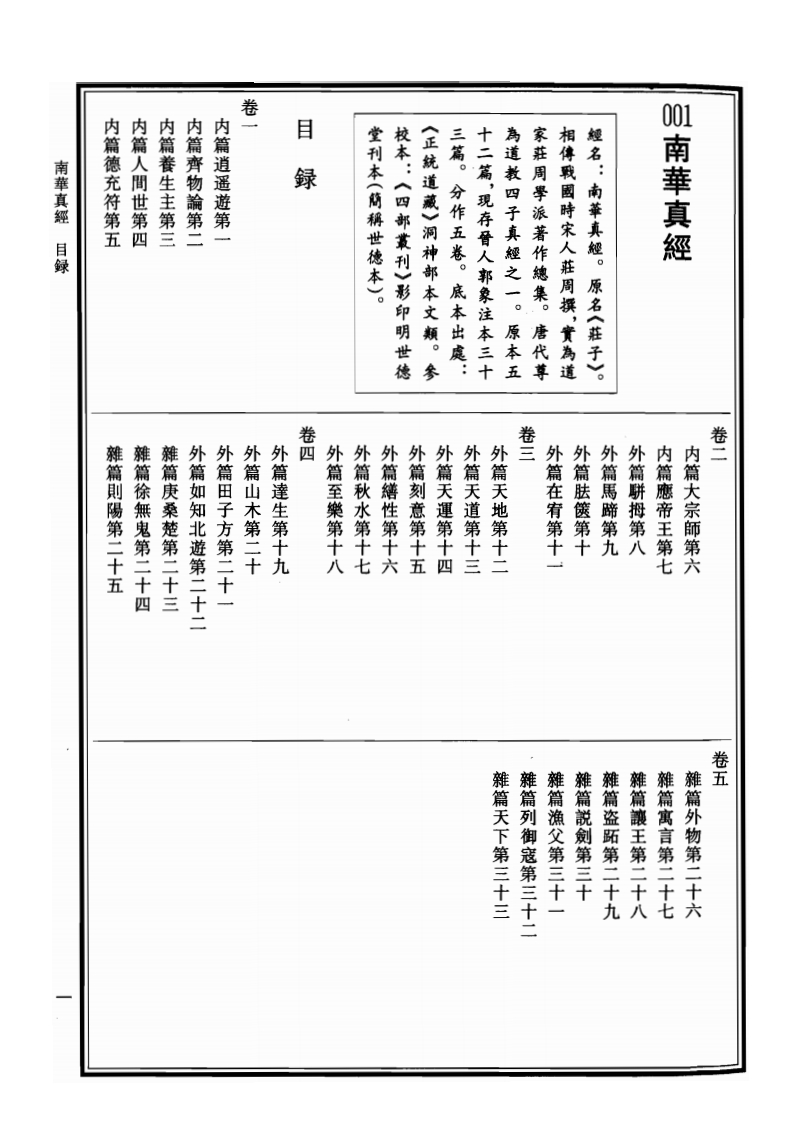 001南華真經
經名：南華真經。原名《莊子》。
相傳戰國時宋人莊周撰，實為道
家莊周學派著作總集。唐代尊
為道教四子真經之一。原本五
十二篇，現存晉人郭象注本三十
三篇。分作五卷。底本出處：
《正統道藏》洞神部本文類。參
校本：《四部叢刊》影印明世德
堂刊本（簡稱世德本）。
目録
卷一
内篇逍遥遊第一
内篇齊物論第二
内篇養生主第三
内篇人間世第四
内篇德充符第五
卷二
内篇大宗師第六
内篇應帝王第七
外篇駢拇第八
外篇馬蹄第九
外篇胠篋第十
外篇在宥第十一
卷三
外篇天地第十二
外篇天道第十三
外篇天運第十四
外篇刻意第十五
外篇繕性第十六
外篇秋水第十七
外篇至樂第十八
卷四
外篇達生第十九
外篇山木第二十
外篇田子方第二十一
外篇如知北遊第二十二
雜篇庚桑楚第二十三
雜篇徐無鬼第二十四
雜篇則陽第二十五
卷五
雜篇外物第二十六
雜篇寓言第二十七
雜篇讓王第二十八
雜篇盜跖第二十九
雜篇説劍第三十
雜篇漁父第三十一
雜篇列御寇第三十二
雜篇天下第三十三
南華真經　目録
一